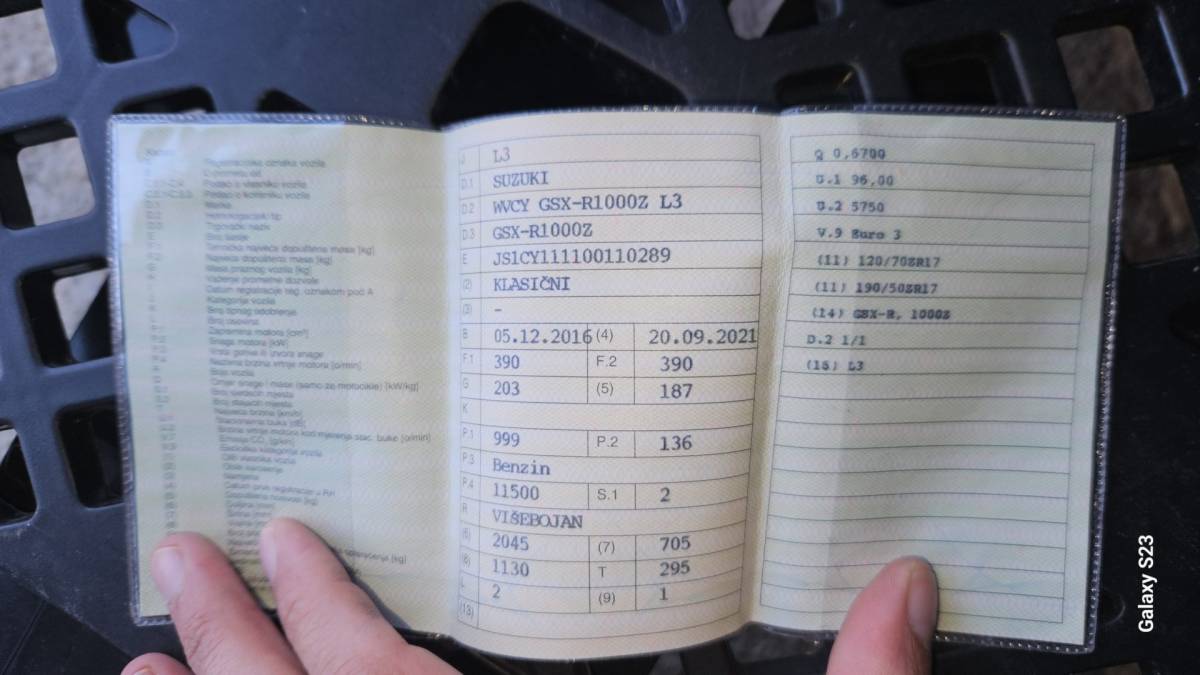 Registracijska oznaka vozila
Podaci o vlasniku vozila
Podaci o korisniku vozila
Marka
Homologacijski tip
Trgovački naziv
Broj šasije
Tehnička najveća dopuštena masa [kg]
Najveća dopuštena masa [kg]
Masa praznog vozila [kg]
Važenje prometne dozvole
Datum registracije reg. oznakom pod A
Kategorija vozila
Broj tipnog odobrenja
Broj osovina
Zapremina motora [cm³]
Snaga motora [kW]
Vrsta goriva ili izvora snage
Nazivna brzina vrtnje motora [o/min]
Boja vozila
Omjer snage i mase (samo za motocikle) [kW/kg]
Broj sjedećih mjesta
Broj stajaćih mjesta
Najveća brzina [km/h]
Stacionarna buka [dB]
Brzina vrtnje motora kod mjerenja stac. buke [o/min]
Emisija CO₂ [g/km]
Ekološka kategorija vozila
OIB vlasnika vozila
Oblik karoserije
Namjena
Datum prve registracije u RH
Dopuštena nosivost [kg]
J L3
D.1 SUZUKI
D.2 WVCY GSX-R1000Z L3
D.3 GSX-R1000Z
E JS1CY111100110289
(2) KLASIČNI
(3) –
B 05.12.2016 (4) 20.09.2021
F.1 390 F.2 390
G 203 (5) 187
K
P.1 999 P.2 136
P.3 Benzin
P.4 11500 S.1 2
R VIŠEBOJAN
(6) 2045 (7) 705
(8) 1130 T 295
L 2 (9) 1
(13)
Q 0,6700
U.1 96,00
U.2 5750
V.9 Euro 3
(11) 120/70ZR17
(11) 190/50ZR17
(14) GSX-R, 1000Z
D.2 1/1
(15) L3
Galaxy S23